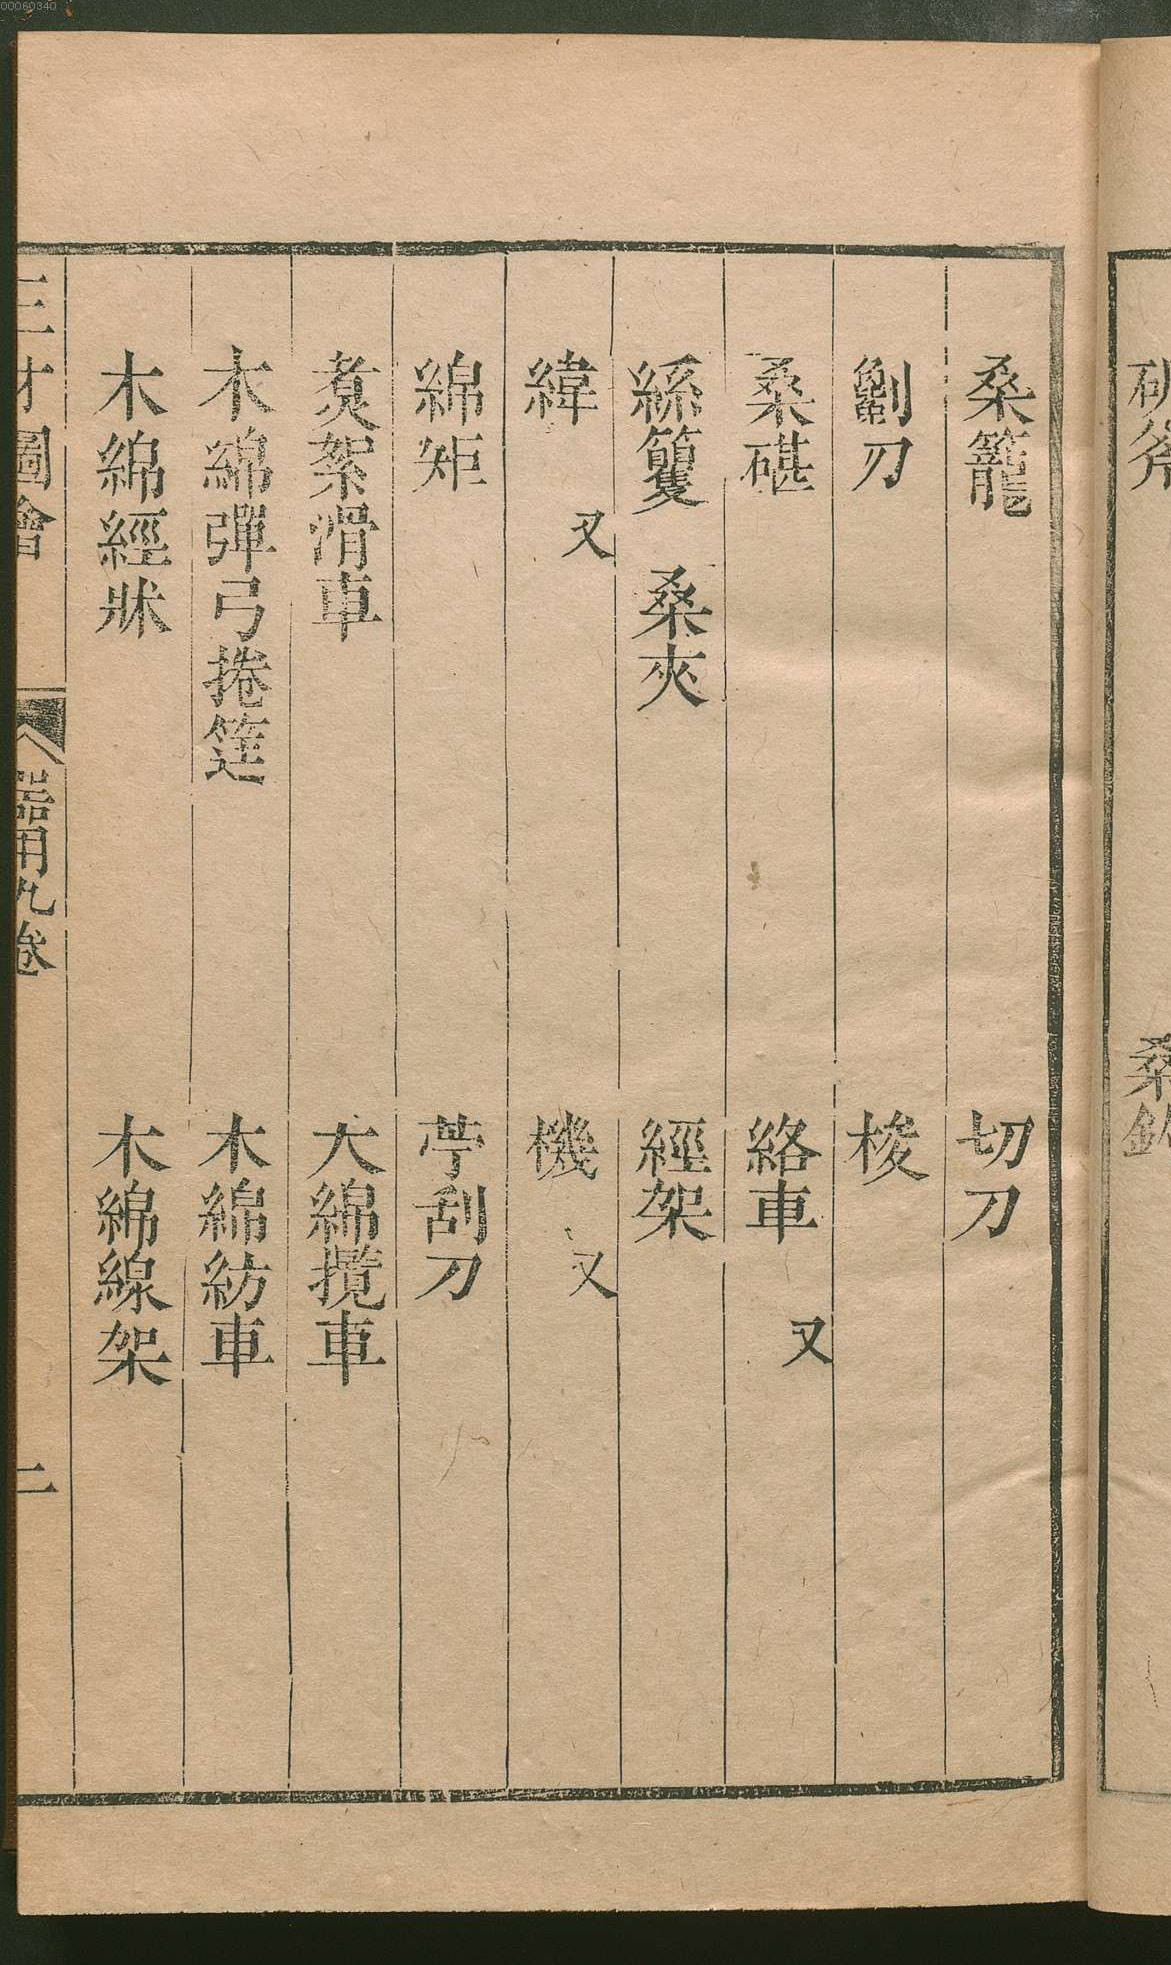 00060340
斧
桑
桑籠 切刀
劖刃 梭
桑碪 絡車 又
絲籰 桑夾 經架
緯 又 機 又
綿矩 苧刮刀
煑絮滑車 大綿攪車
木綿彈弓捲筳 木綿紡車
木綿經牀 木綿線架
三才圖會 器用九卷 二